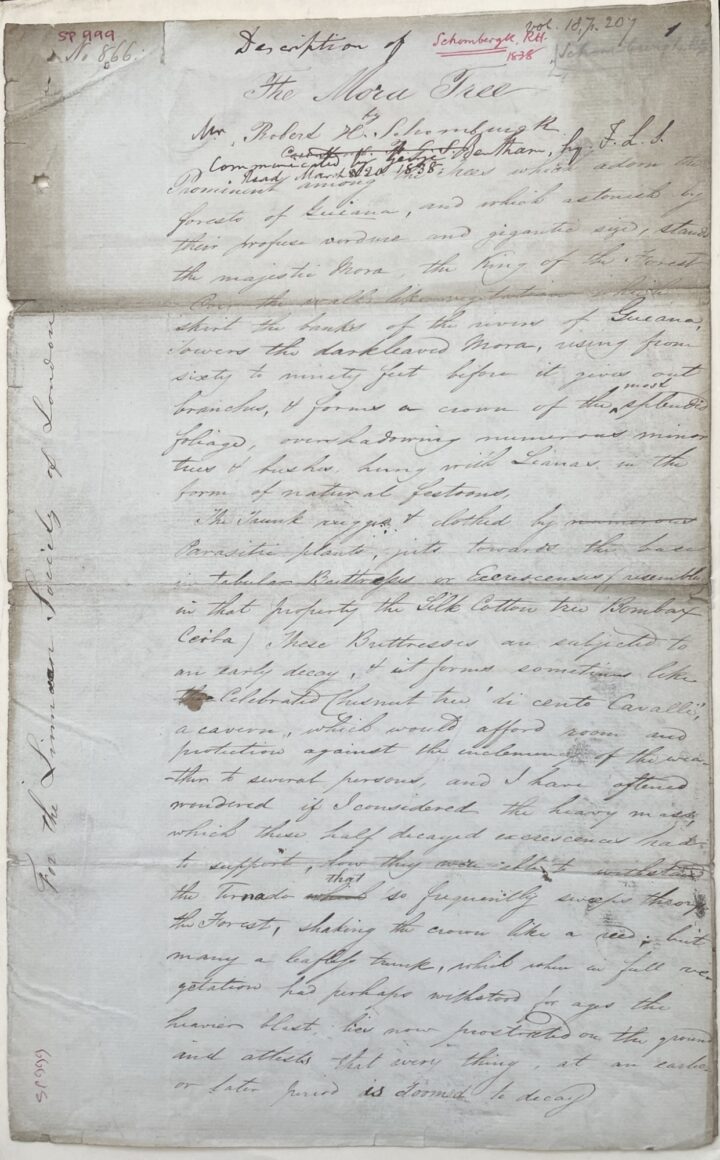 SP 999
No 866.
vol. 18, p. 207
1
Description of
Schomburgk, RH.
1838
The Mora Tree
by
Mr. Robert H. Schomburgk
Communicated by George Bentham, Esq. F.L.S.
Read March 20 1838
Prominent among the trees which adorn the
forests of Guiana, and which astonish by
their profuse verdure and gigantic size, stands
the majestic Mora, the King of the Forest
Over the wall-like vegetation which
skirt the banks of the rivers of Guiana,
towers the darkleaved Mora, rising from
sixty to ninety feet before it gives out
branches, & forms a crown of the most splendid
foliage, overshadowing numerous minor
trees & bushes, hung with Lianas in the
form of natural festoons.
The Trunk rugged & clothed by numerous
Parasitic plants, juts towards the base
in tabular Buttresses or Excrescenses (resembling
in that property the Silk Cotton tree Bombax
Ceiba) These Buttresses are subjected to
an early decay, & it forms sometimes like
the Celebrated Chesnut tree 'di cento Cavalli',
a cavern, which would afford room and
protection against the inclemency of the wea-
ther to several persons, and I have oftened
wondered if I considered the heavy mass,
which these half decayed excrescences had
to support, how they were able to withstand
the Tornado which that so frequently sweeps through
the Forest, shaking the crown like a reed; but
many a leafless trunk, which when in full ve-
getation had perhaps withstood for ages the
heavier blast, lies now prostrated on the ground
and attests that every thing, at an earlier
or later period is doomed to decay
For the Linnean Society of London
SP999